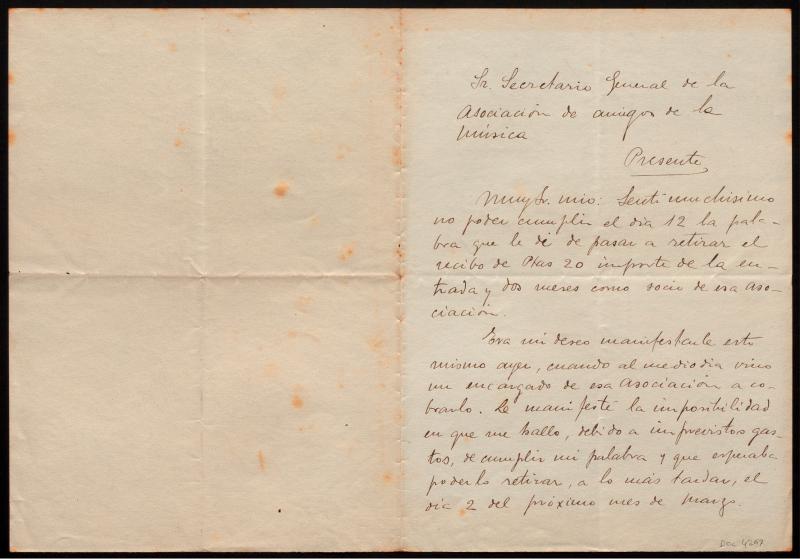 Sr. Secretario General de la
Asociación de amigos de la
Música
Presente
Muy Sr. mio: Sentí muchisimo
no poder cumplir el dia 12 la pala-
bra que le di de pasar a retirar el
recibo de Ptas 20 importe de la en-
trada y dos meses como socio de esa Aso-
ciación.
Era mi deseo manifestarle esto
mismo ayer, cuando al mediodia vino
un encargado de esa Asociación a co-
brarlo. Le manifesté la imposibilidad
en que me hallo, debido a imprevistos gas-
tos, de cumplir mi palabra y que esperaba
poderlo retirar, a lo más tardar, el
dia 2 del próximo mes de Marzo.
Doc 4257